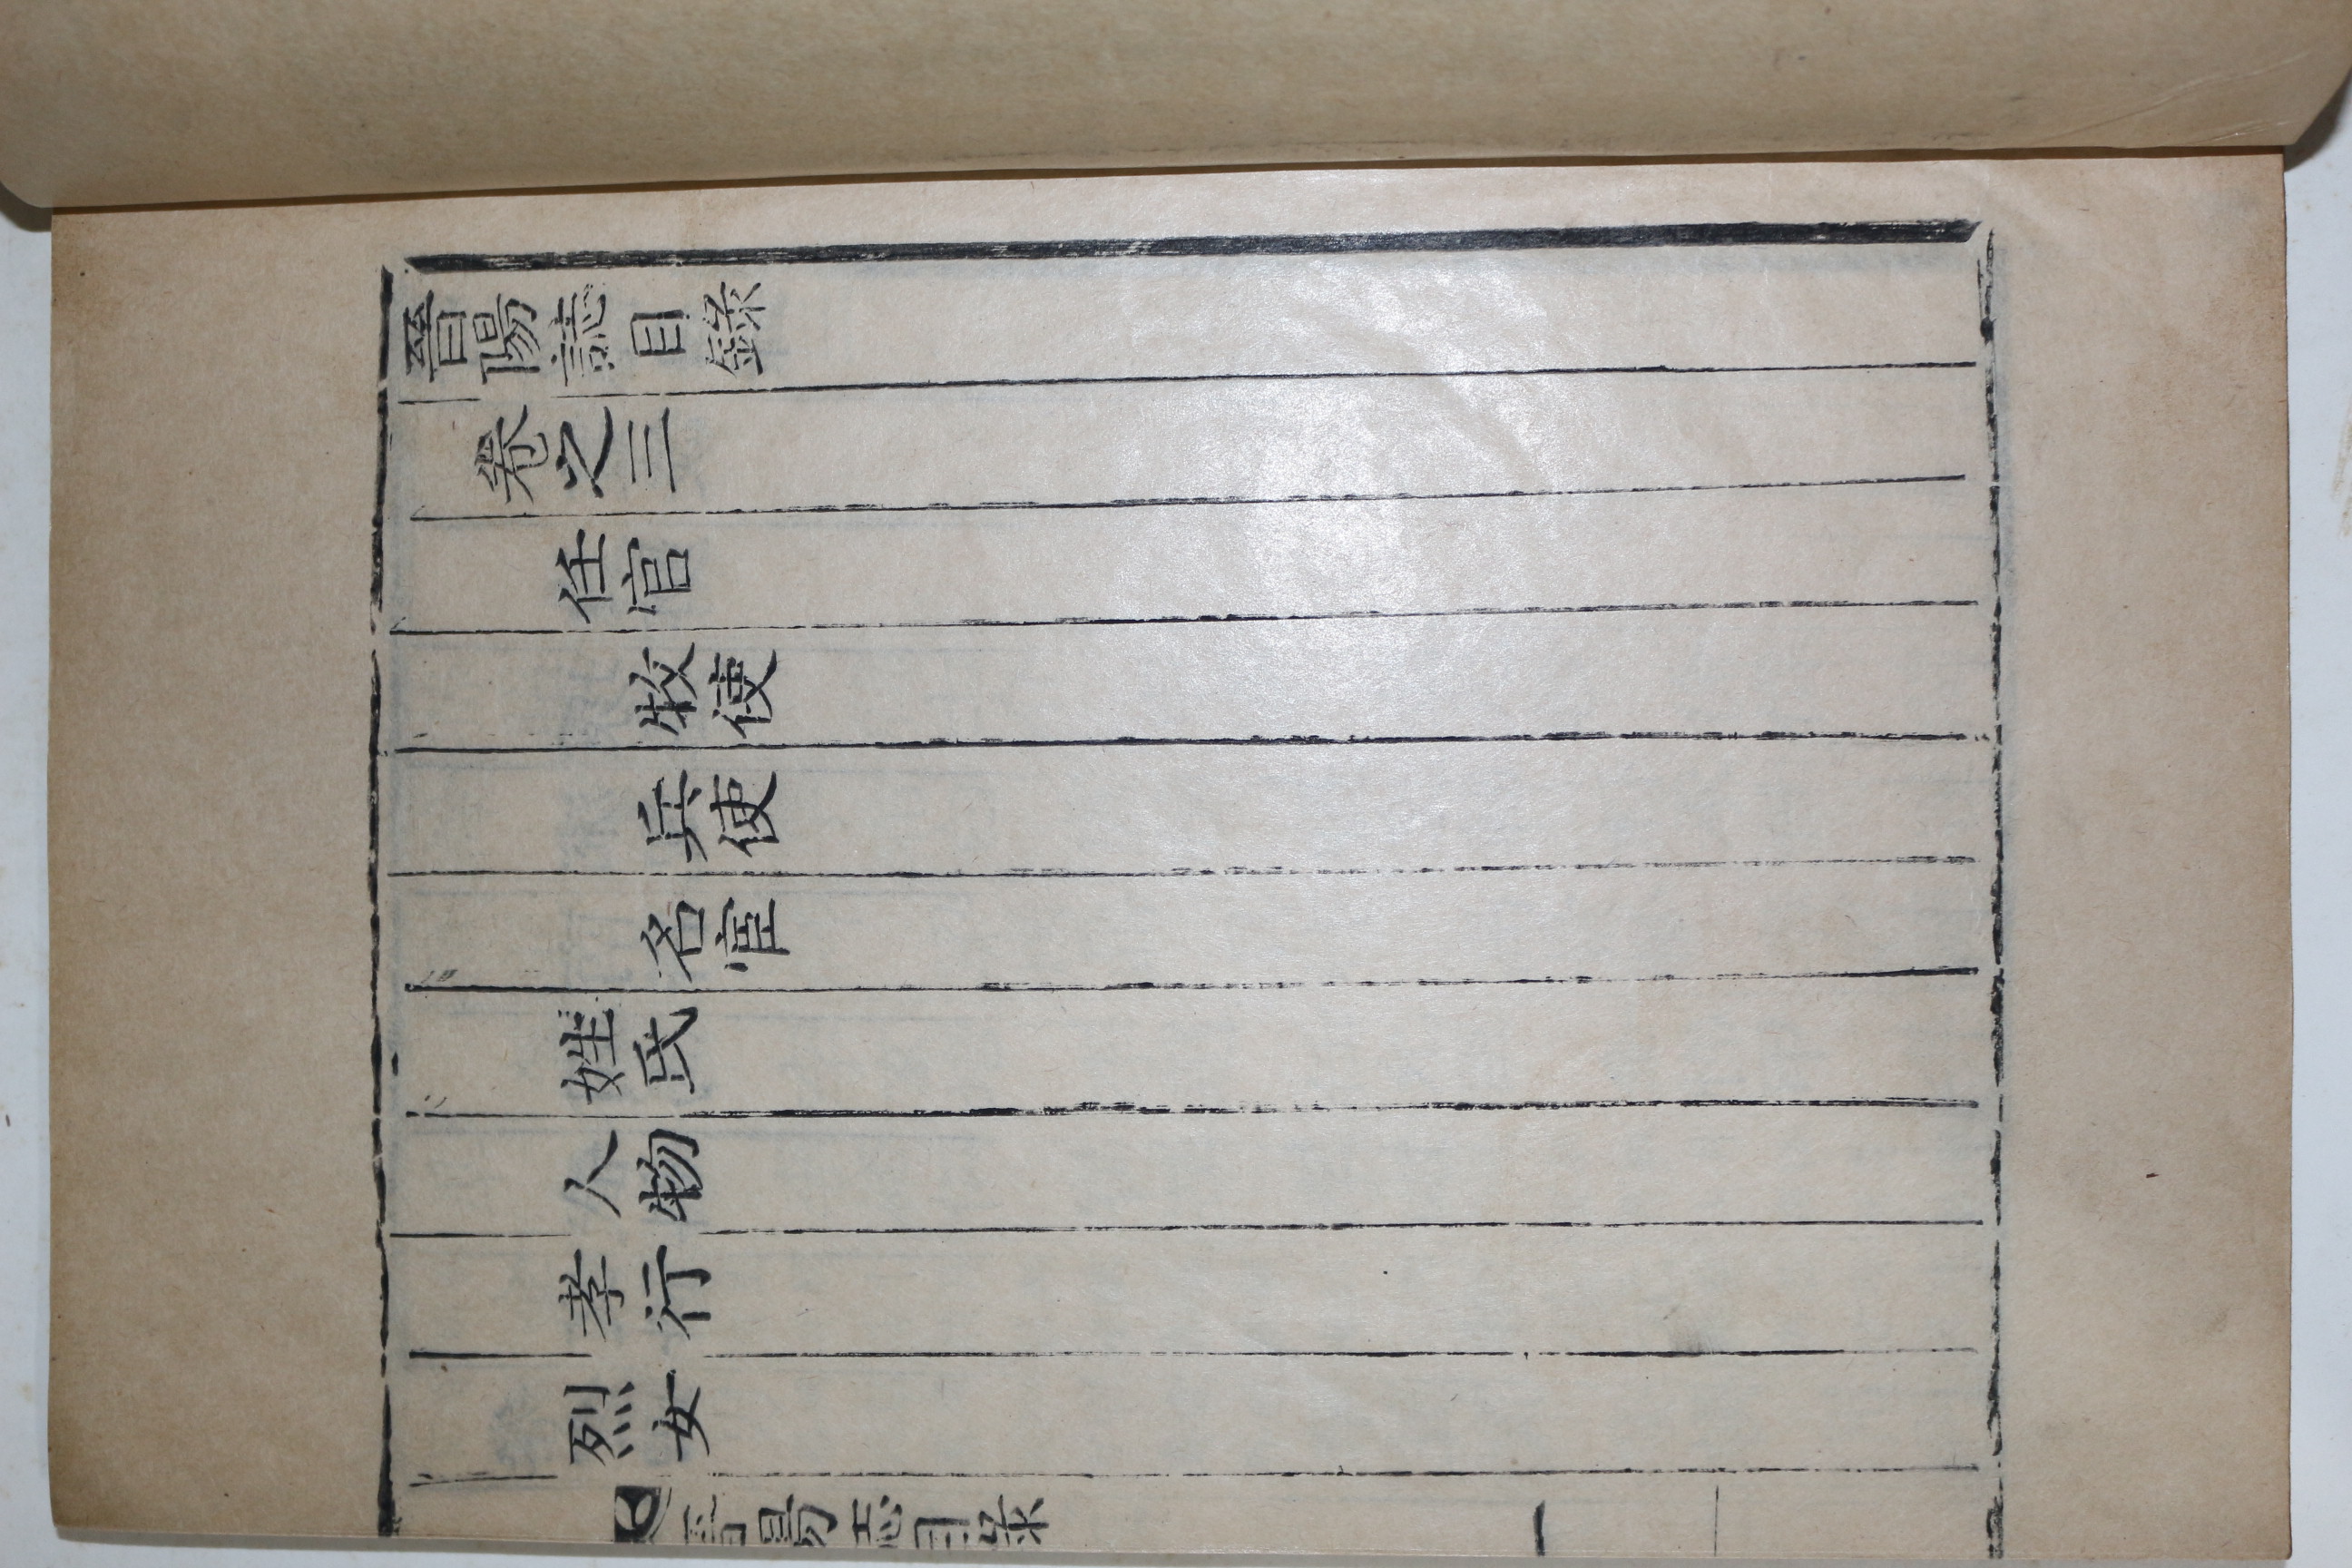 晉陽誌目錄
卷之三
任官
牧使
兵使
名宦
姓氏
人物
孝行
烈女
晉陽誌目錄
一